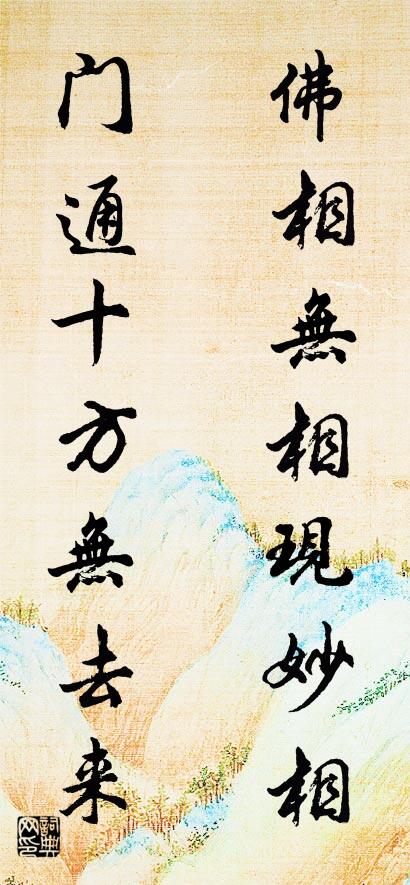 佛相無相現妙相
门通十方無去来
詞典网印